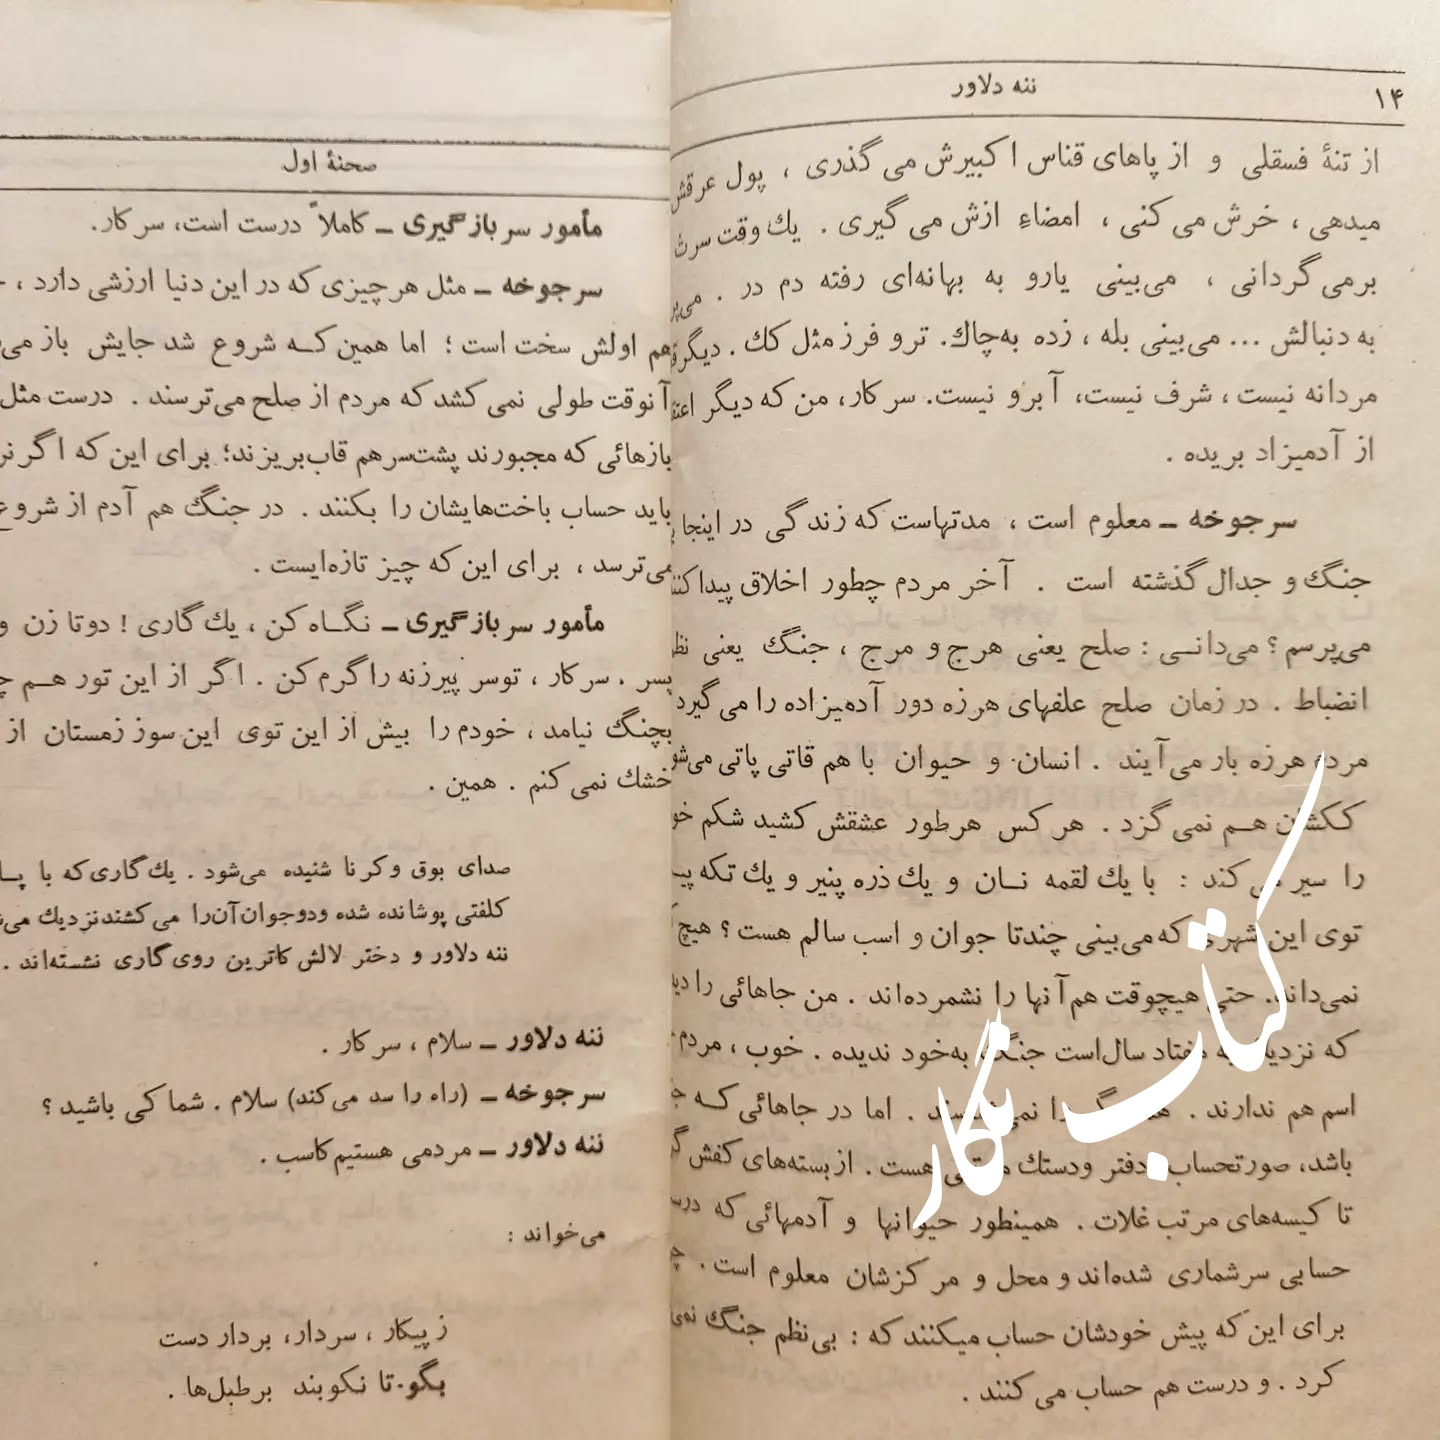 ۱۴
ننه دلاور
از تنهٔ فسقلی و از پاهای قناس اکبیرش می گذری ، پول عرقش
میدهی ، خرش می کنی ، امضاءِ ازش می گیری . یك وقت سرت
برمی گردانی ، می‌بینی یارو به بهانه‌ای رفته دم در .
به دنبالش ... می‌بینی بله ، زده به‌چاك. ترو فرز مثل كك .
مردانه نیست ، شرف نیست، آبرو نیست. سرکار، من که دیگر
از آدمیزاد بریده .
سرجوخه ــ معلوم است ، مدتهاست که زندگی در اینجا
جنگ و جدال گذشته است . آخر مردم چطور اخلاق
می‌پرسم ؟ می‌دانــی : صلح یعنی هرج و مرج ، جنگ یعنی
انضباط . در زمان صلح علفهای هرزه دور آدمیزاده را می گیرد
مردم هرزه بار می‌آیند . انسان و حیوان با هم قاتی پاتی
ککشان هــم نمی گزد . هر کس هرطور عشقش کشید شکم
را سیر می کند : با یك لقمه نــان و یك ذره پنیر و یك تکه
توی این شهری که می‌بینی چندتا جوان و اسب سالم هست ؟
نمی‌داند. حتی هیچوقت هم آنها را نشمرده‌اند . من جاهائی را
که نزدیك به هفتاد سال‌است جنگ به‌خود ندیده . خوب ، مردم
اسم هم ندارند . را . اما در جاهائی کــه
باشد، صورتحساب دفتر ودستك هست . از بسته‌های کفش
تا کیسه‌های مرتب غلات . همینطور حیوانها و آدمهائی که
حسابی سرشماری شده‌اند و محل و مرکزشان معلوم است .
برای این که پیش خودشان حساب میکنند که : بی‌نظم جنگ
کرد . و درست هم حساب می کنند .
صحنهٔ اول
مأمور سربازگیری ــ کاملاً درست است، سرکار.
سرجوخه ــ مثل هرچیزی که در این دنیا ارزشی دارد ،
هم اولش سخت است ؛ اما همین کــه شروع شد جایش باز
آنوقت طولی نمی کشد که مردم از صلح می‌ترسند . درست مثل
بازهائی که مجبورند پشت‌سرهم قاب‌بریزند؛ برای این که اگر
باید حساب باخت‌هایشان را بکنند . در جنگ هم آدم از شروع
می‌ترسد ، برای این که چیز تازه‌ایست .
مأمور سربازگیری ــ نگــاه کن ، یك گاری ! دوتا زن و
پسر . سرکار ، توسر پیرزنه را گرم کن . اگر از این تور هــم
بچنگ نیامد ، خودم را بیش از این توی این سوز زمستان از
خشك نمی کنم . همین .
صدای بوق و کرنا شنیده می‌شود . یك گاری که با
کلفتی پوشانده شده ودوجوان آن‌را می کشند نزدیك
ننه دلاور و دختر لالش کاترین روی گاری نشسته‌اند .
ننه دلاور ــ سلام ، سرکار .
سرجوخه ــ (راه را سد می کند) سلام . شما کی باشید ؟
ننه دلاور ــ مردمی هستیم کاسب .
می‌خواند :
ز پیکار ، سردار، بردار دست
بگو تا نکوبند برطبل‌ها .
کتاب نگار